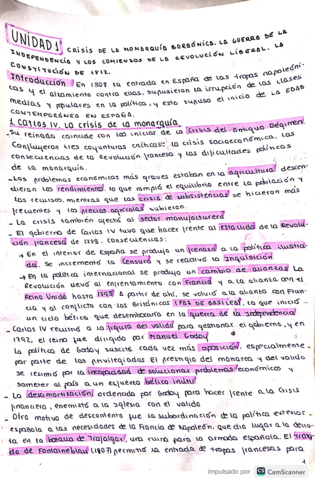 UNIDAD 1
CRISIS DE LA MONARQUÍA BORBÓNICA. LA GUERRA DE LA
INDEPENDENCIA Y LOS COMIENZOS DE LA REVOLUCIÓN LIBERAL. LA
CONSTITUCIÓN DE 1812.
Introducción / En 1808 la entrada en España de las tropas napoleóni-
cas y el alzamiento contra ellas, supusieron la irrupción de las clases
medias y populares en la política, y esto supuso el inicio de LA EDAD
CONTEMPORÁNEA EN ESPAÑA.
1. CARLOS IV. LA CRISIS DE LA MONARQUÍA
- Su reinado coincide con los inicios de la Crisis del Antiguo Régimen.
Confluyeron tres coyunturas críticas: la crisis socioeconómica, las
consecuencias de la Revolución Francesa y las dificultades políticas
de la monarquía.
- Los problemas económicos más graves estaban en la agricultura: descen-
dieron los rendimientos, lo que rompió el equilibrio entre la población y
los recursos, mientras que las crisis de subsistencias se hicieron más
frecuentes y los precios agrícolas subieron.
- La crisis también afectó al sector manufacturero
- El gobierno de Carlos IV tuvo que hacer frente al estallido de la Revolu-
ción Francesa de 1789. Consecuencias:
→ En el interior de España se produjo un frenazo a la política ilustra-
da. Se incrementó la censura y se reactivó la Inquisición
→ En la política internacional se produjo un cambio de alianzas. La
Revolución llevó al enfrentamiento con Francia y a la alianza con el
Reino Unido hasta 1795. A partir de ahí, se volvió a la alianza con Fran-
cia y al conflicto con los británicos (PAZ DE BASILEA), lo que inició
un ciclo bélico que desembocaría en la guerra de la independencia
- Carlos IV recurrió a la figura del valido para gestionar el gobierno, y en
1792, el reino fue dirigido por Manuel Godoy
- La política de Godoy suscitó cada vez más oposición, especialmente
por parte de los privilegiados. El prestigio del monarca y del valido
se resintió por la incapacidad de solucionar problemas económicos y
someter al país a un esfuerzo bélico inútil
- La desamortización ordenada por Godoy para hacer frente a la crisis
financiera, enemistó a la Iglesia con el valido
- Otro motivo de descontento fue la subordinación de la política exterior
española a las necesidades de la Francia de Napoleón, que dio lugar a la derro-
ta en la batalla de Trafalgar, una ruina para la armada española. El Trata-
do de Fontainebleau (1807) permitió la entrada de tropas francesas para
Impulsado por CS CamScanner